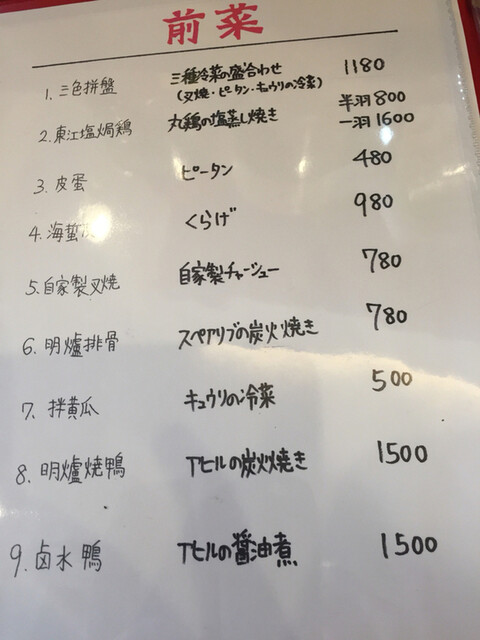 前菜
1. 三色拼盤 三種冷菜の盛合わせ 1180
(叉焼・ピータン・キュウリの冷菜)
2. 東江塩焗鶏 丸鶏の塩蒸し焼き 半羽 800
一羽 1600
3. 皮蛋 ピータン 480
4. 海蜇 くらげ 980
5. 自家製叉焼 自家製チャーシュー 780
6. 明爐排骨 スペアリブの炭火焼き 780
7. 拌黄瓜 キュウリの冷菜 500
8. 明爐焼鴨 アヒルの炭火焼き 1500
9. 卤水鴨 アヒルの醤油煮 1500